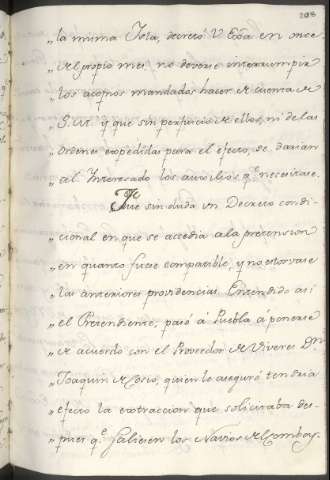 208
„ la misma Jota, decretó V. Exâ en once
„ del propio mes, no deverse interrumpir
„ los acopios mandados hacer de cuenta de
„ S. M. y que sin perjuicio de ellos, ni de las
„ ordenes expedidas para el efecto, se darian
„ al Interesado los auxilios q.e necesitase.
Fue sin duda un Decreto condi-
„ cional en que se accedia a la pretension
„ en quanto fuese compatible, y no estorvase
„ las anteriores providencias. Entendido asi
„ el Pretendiente, pasó á Puebla á ponerse
„ de acuerdo con el Proveedor de Viveres Dn.
„ Joaquin de Cosio, quien le aseguró tendria
„ efecto la extraccion que solicitaba des-
„ pues q.e Saliesen los Navios del comboy.